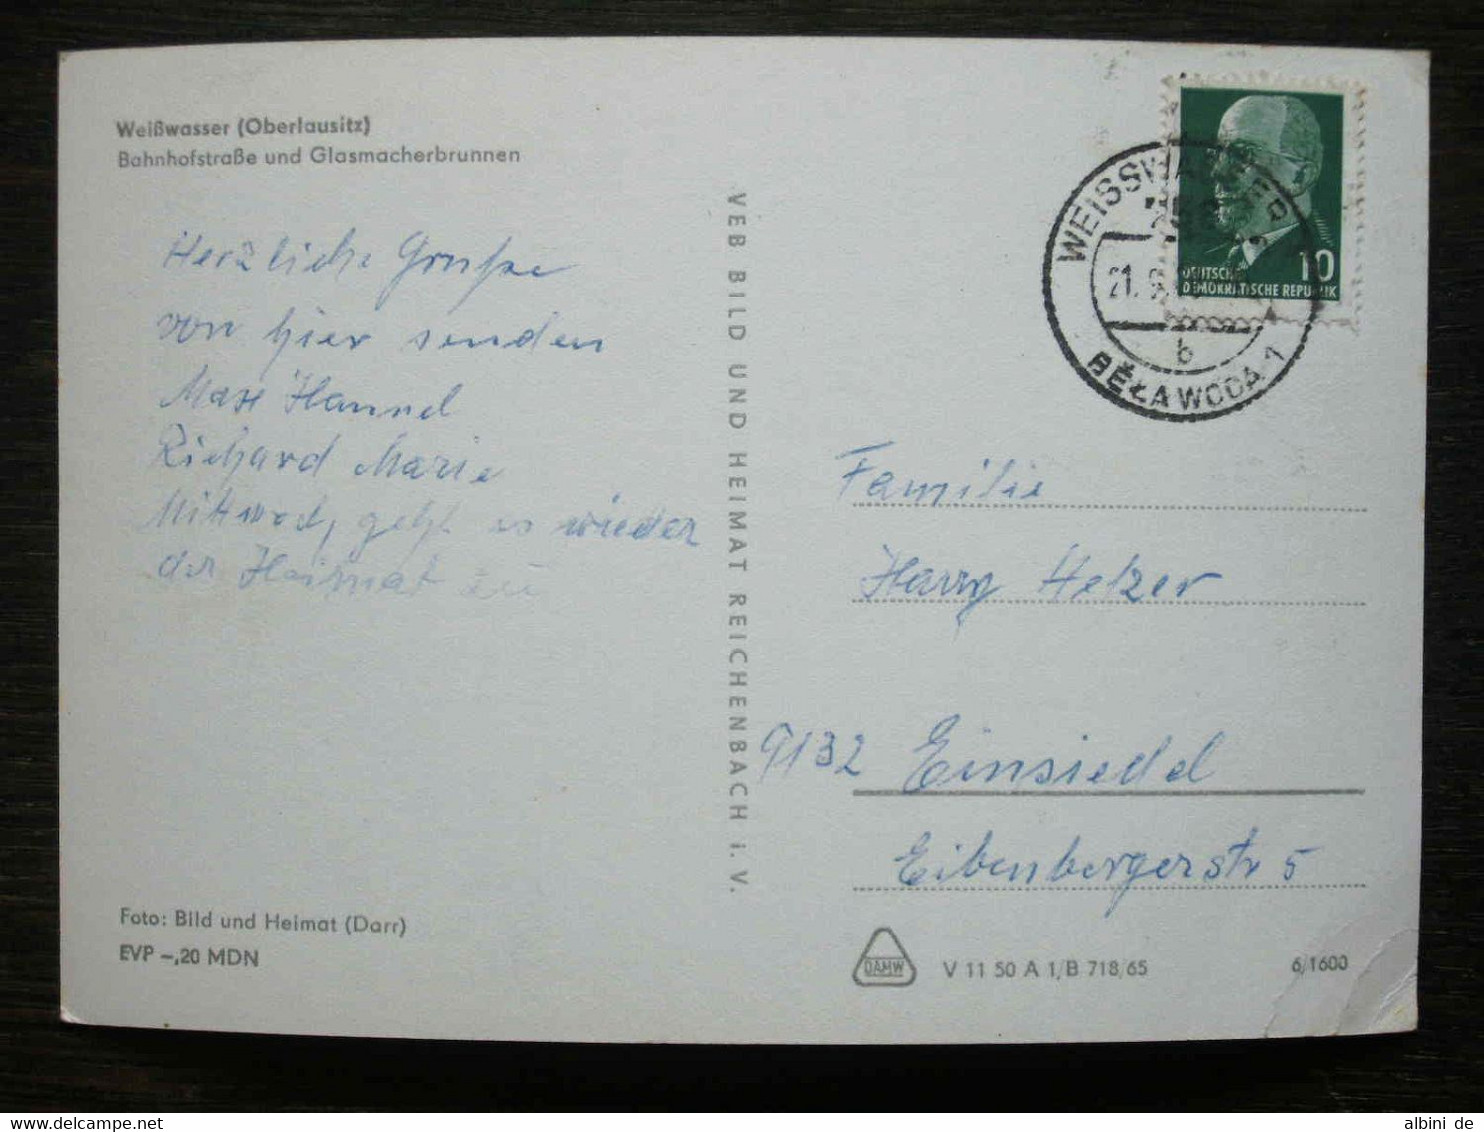 Weißwasser (Oberlausitz)
Bahnhofstraße und Glasmacherbrunnen
Herzliche Grüße
von hier senden
Max Hannel
Richard Marie
Mittwoch geht es wieder
der Heimat zu
Foto: Bild und Heimat (Darr)
EVP –,20 MDN
VEB BILD UND HEIMAT REICHENBACH i. V.
WEISSWASSER
21. 9.
b
BĚŁA WODA 1
10
DEUTSCHE
DEMOKRATISCHE REPUBLIK
Familie
Harry Helzer
9132 Einsiedel
Eibenbergerstr 5
DAMW
V 11 50 A 1/B 718/65
6/1600
albini de